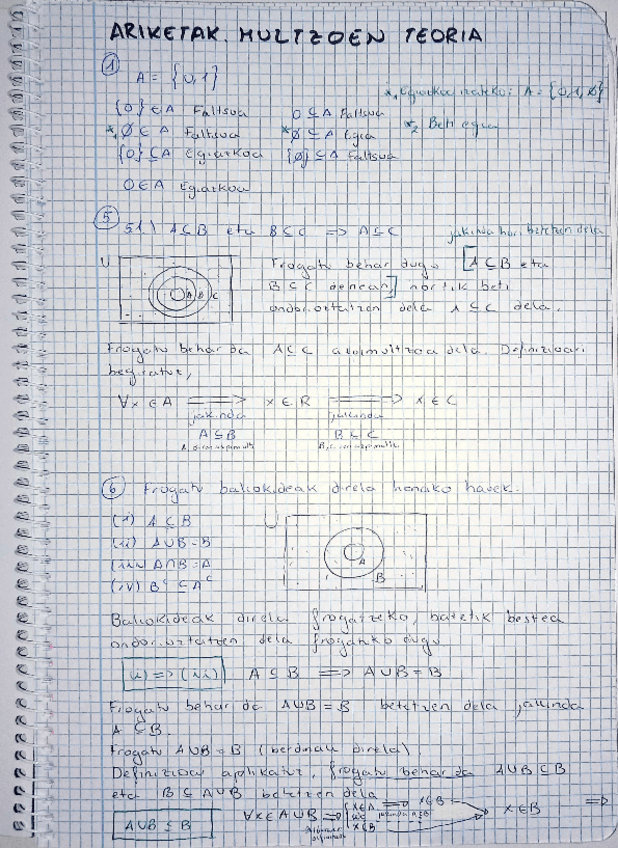 ARIKETAK. MULTZOEN TEORIA
①
A = {0,1}
*₁ Egiazkoa izateko: A = {0,1,∅}
{0} ∈ A Faltsua 0 ⊆ A Faltsua
*₁ ∅ ∈ A Faltsua *₂ ∅ ⊆ A Egia *₂ Beti egia
{0} ⊆ A Egiazkoa {∅} ⊆ A Faltsua
0 ∈ A Egiazkoa
⑤ 5.1) A ⊆ B eta B ⊆ C ⇒ A ⊆ C jakinda hau betetzen dela
U A B C
Frogatu behar dugu [A ⊆ B eta
B ⊆ C denean] hortik beti
ondorioztatzen dela A ⊆ C dela.
Frogatu behar da A ⊆ C azpimultzoa dela. Definizioari
begiratuz,
∀x ∈ A ⇒ x ∈ B ⇒ x ∈ C
jakinda jakinda
A ⊆ B B ⊆ C
⑥ Frogatu baliokideak direla honako hauek.
(i) A ⊆ B
(ii) A∪B = B
(iii) A∩B = A
(iv) Bᶜ ⊆ Aᶜ
U A B
Baliokideak direla frogatzeko, batetik bestea
ondorioztatzen dela frogatuko dugu
(i) ⇒ (ii) A ⊆ B ⇒ A∪B = B
Frogatu behar da A∪B = B betetzen dela jakinda
A ⊆ B.
Frogatu A∪B = B (berdinak direla)
Definizioa aplikatuz, frogatu behar da A∪B ⊆ B
eta B ⊆ A∪B betetzen dela
A∪B ⊆ B ∀x ∈ A∪B ⇒ { x∈A ⇒ x∈B → x∈B ⇒
jakinda A⊆B
x∈B